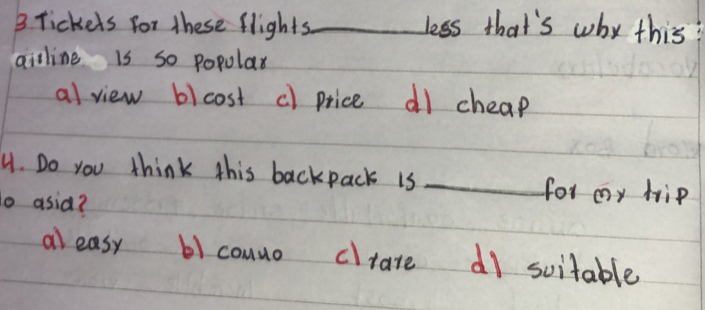 3. Tickets for these flights______less that's why this
airline is so popular
a) view b) cost c) price d) cheap
4. Do you think this backpack is ______for my trip
to asia?
a) easy b) c) rare d) suitable